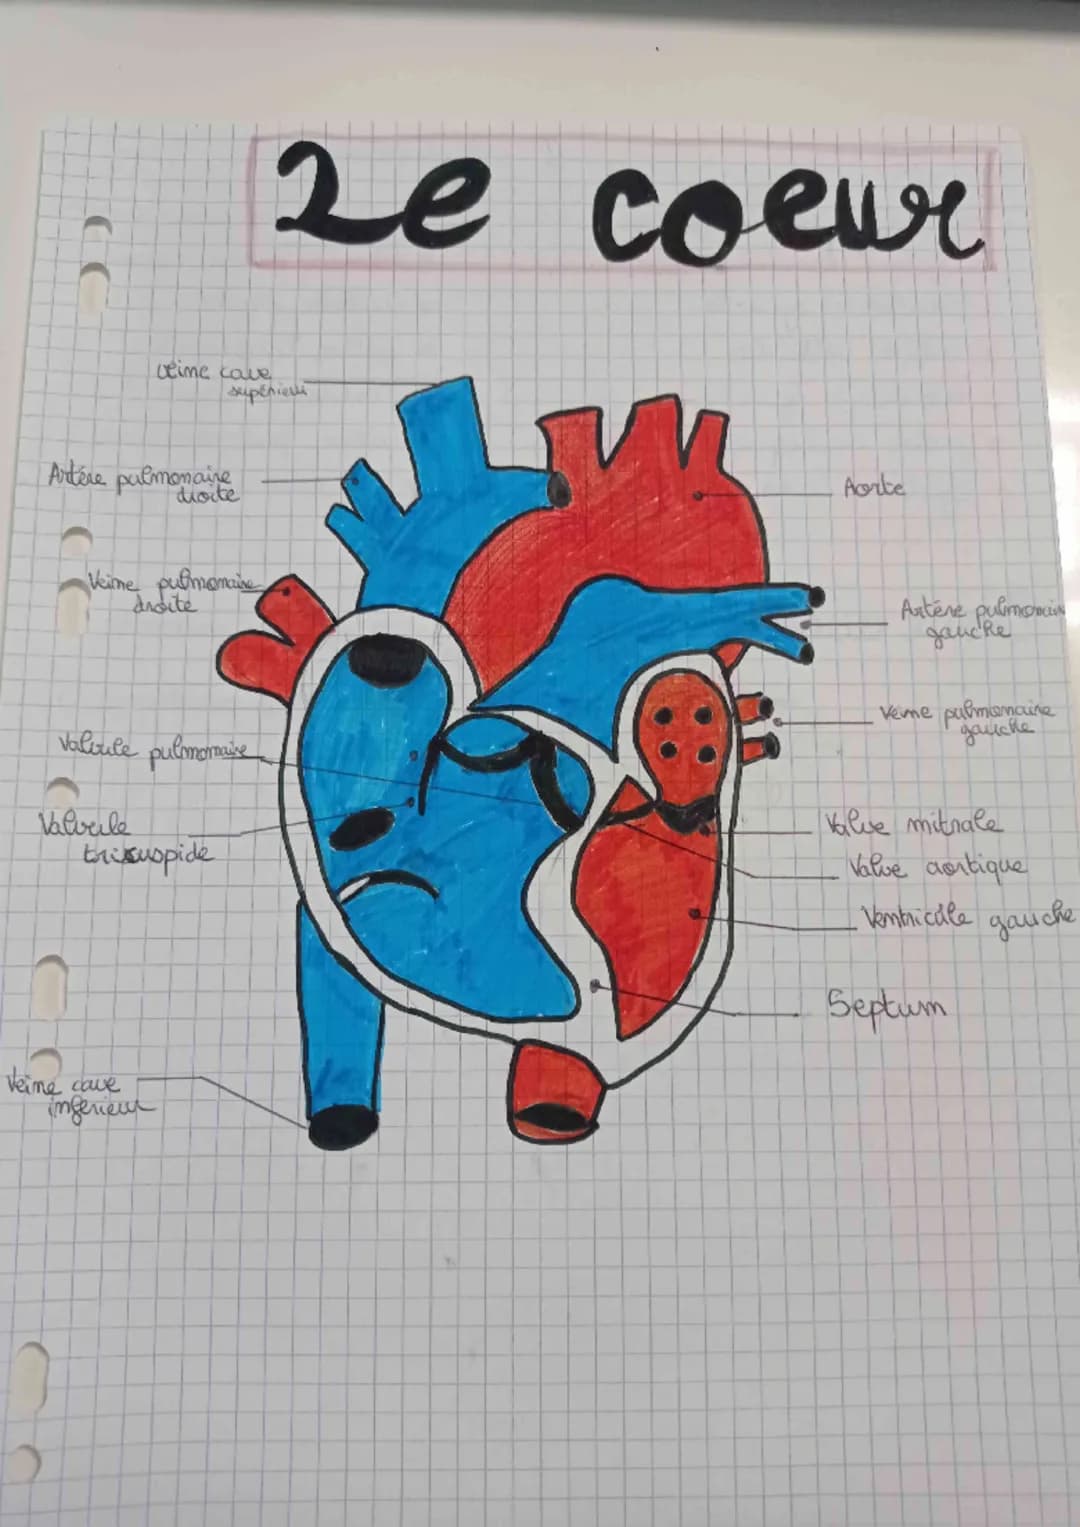 Le coeur
Veine cave
supérieur
Artére pulmonaire
droite
Aorte
Veine pulmonaire
droite
Artére pulmonair
gauche
Veine pulmonaire
gauche
Valvule pulmonaire
Valvule
tricuspide
Valve mitrale
Valve aortique
Ventricule gauche
Septum
Veine cave
inferieur